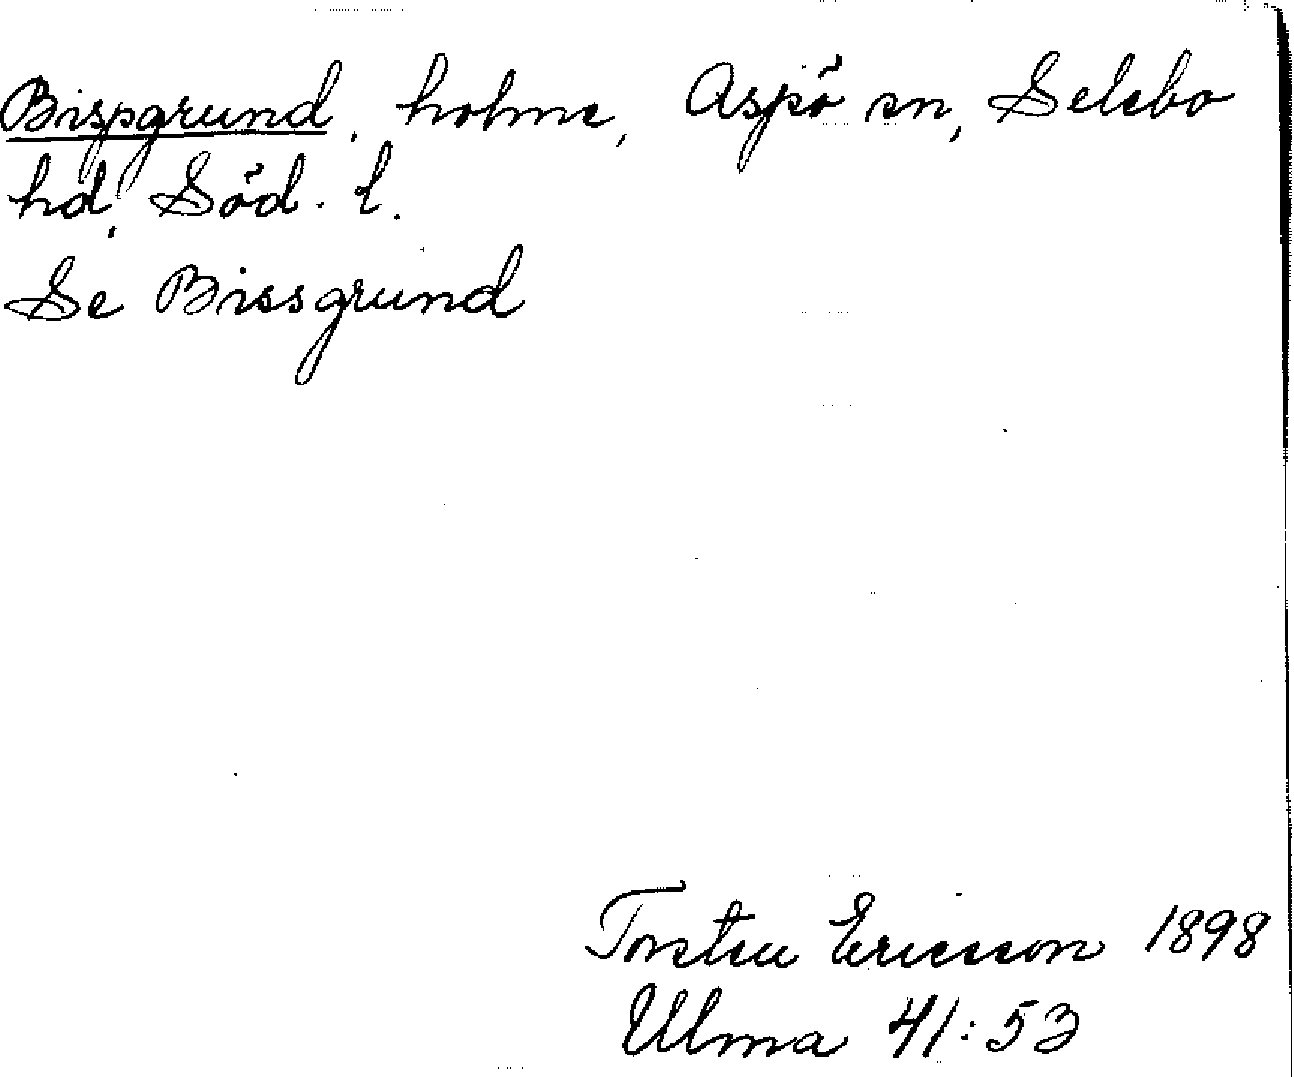 Bispgrund, holme, Aspö sn, Selebo
hd, Söd. l.
Se Bissgrund
Torsten Ericsson 1898
Ulma 41:53